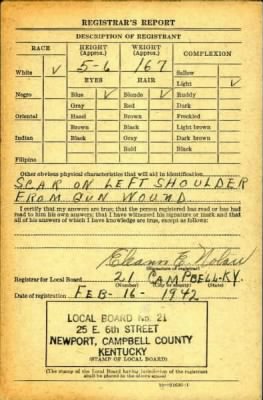 REGISTRAR'S REPORT
DESCRIPTION OF REGISTRANT
RACE HEIGHT (Approx.) WEIGHT (Approx.) COMPLEXION
White ✓ 5-6 167 Sallow
EYES HAIR Light ✓
Negro Blue ✓ Blonde ✓ Ruddy
Gray Red Dark
Oriental Hazel Brown Freckled
Brown Black Light brown
Indian Black Gray Dark brown
Bald Black
Filipino
Other obvious physical characteristics that will aid in identification
SCAR ON LEFT SHOULDER
FROM GUN WOUND
I certify that my answers are true; that the person registered has read or has had
read to him his own answers; that I have witnessed his signature or mark and that
all of his answers of which I have knowledge are true, except as follows:
Eleanor E. Nolan
(Signature of registrar)
Registrar for Local Board 21 CAMPBELL-KY.
(Number) (City or county) (State)
Date of registration FEB-16-1942
LOCAL BOARD No. 21
25 E. 6th STREET
NEWPORT, CAMPBELL COUNTY
KENTUCKY
(STAMP OF LOCAL BOARD)
(The stamp of the Local Board having jurisdiction of the registrant
shall be placed in the above space)